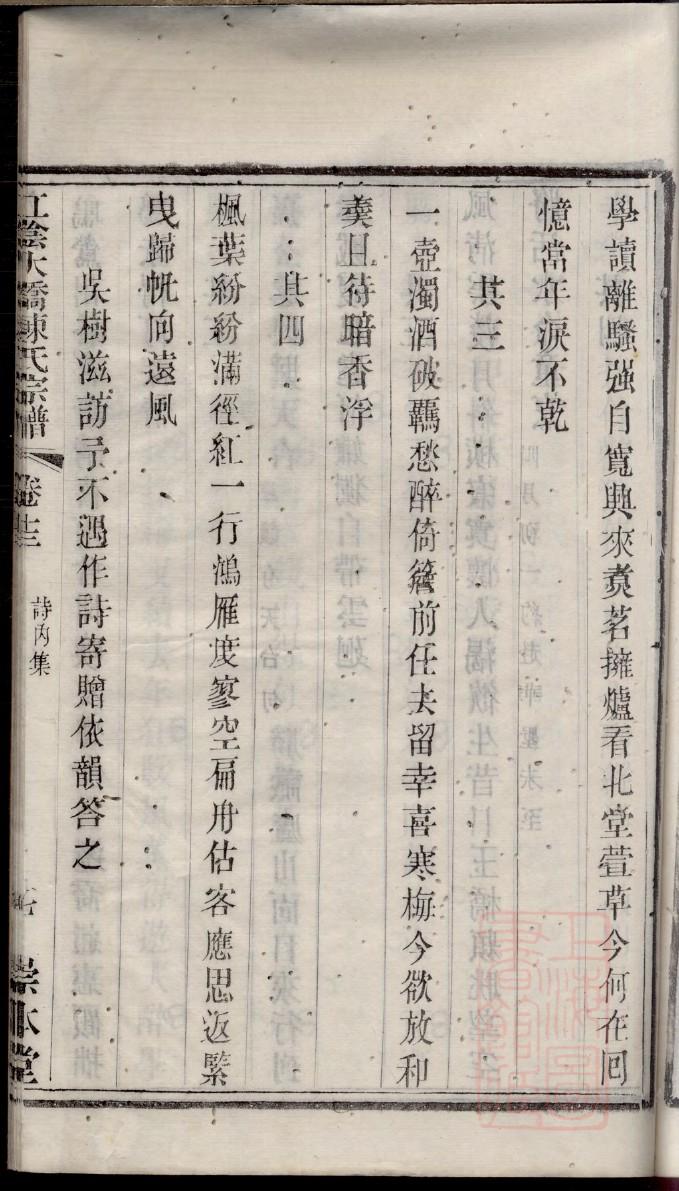 學讀離騷强自寬興來煑茗擁爐看北堂萱草今何在回
憶當年淚不乾
其三
一壺濁酒破羈愁醉倚簷前任去留幸喜寒梅今欲放和
羮日待暗香浮
其四
楓葉紛紛滿徑紅一行鴻雁度寥空扁舟估客應思返緊
曳歸帆向遠風
吳樹滋訪予不遇作詩寄贈依韻答之
江陰大橋陳氏宗譜 卷廿三 詩內集 崇本堂